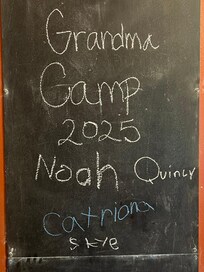 Grandma
Camp
2025
Noah Quincy
Catriona
Skye